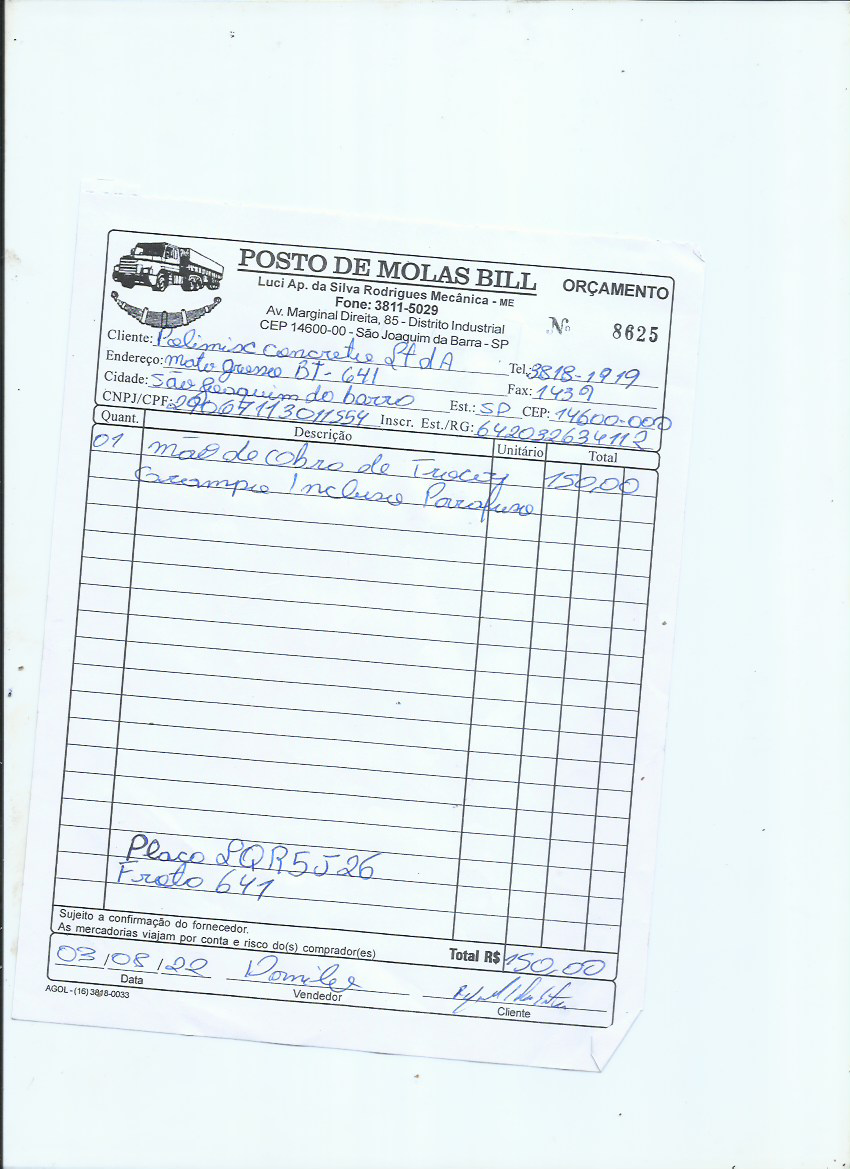 POSTO DE MOLAS BILL
ORÇAMENTO
Luci Ap. da Silva Rodrigues Mecânica - ME
Fone: 3811-5029
Av. Marginal Direita, 85 - Distrito Industrial
CEP 14600-00 - São Joaquim da Barra - SP
Nº 8625
Cliente: Polimix concreto LtdA Tel.: 3818-1919
Endereço: mato grosso BT-641 Fax: 1439
Cidade: são Joaquim da barra Est.: SP CEP: 14600-000
CNPJ/CPF: 29067113011554 Inscr. Est./RG: 642032634112
Quant. Descrição Unitário Total
01 mão de obra de Trocar 150,00
Grampo Incluso Parafuso
Placa LQR5J26
Frota 641
Sujeito a confirmação do fornecedor.
As mercadorias viajam por conta e risco do(s) comprador(es)
Total R$ 150,00
03/08/22
Data Vendedor Cliente
AGOL - (16) 3818-0033